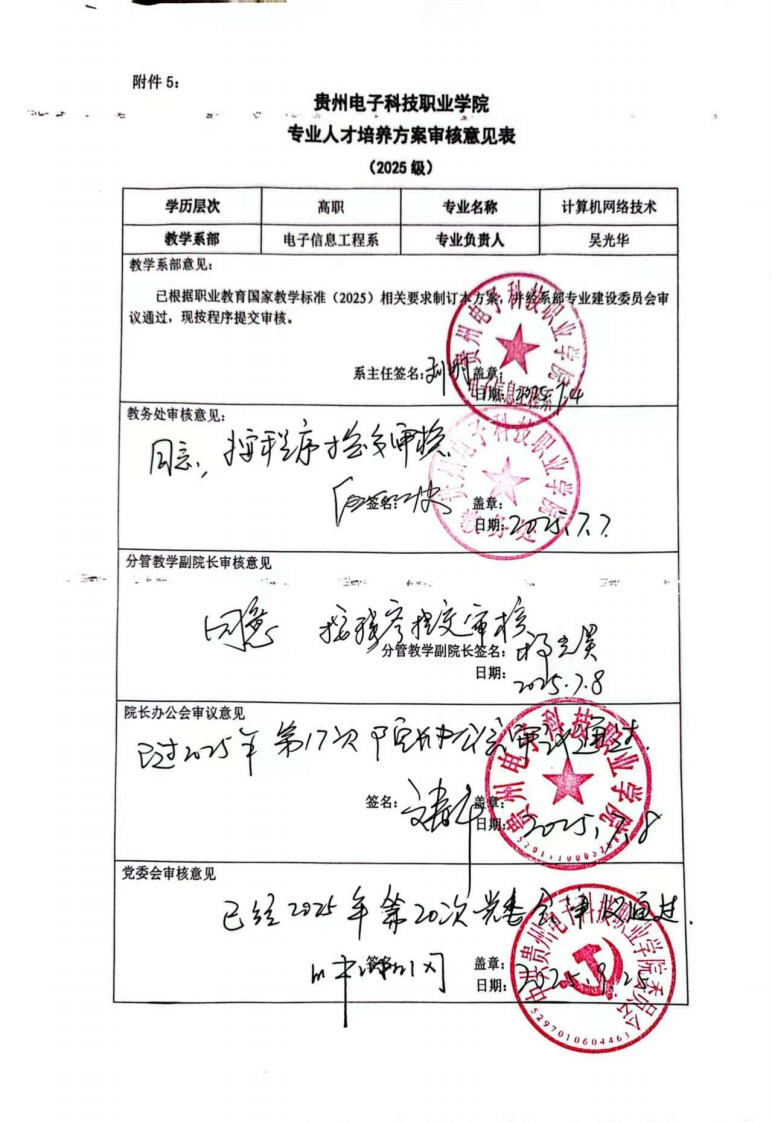 附件 5：
贵州电子科技职业学院
专业人才培养方案审核意见表
（2025 级）
学历层次 高职 专业名称 计算机网络技术
教学系部 电子信息工程系 专业负责人 吴光华
教学系部意见：
已根据职业教育国家教学标准（2025）相关要求制订本方案，并经系部专业建设委员会审
议通过，现按程序提交审核。
贵州电子科技职业学院
系主任签名： 盖章：
电子信息工程系
日期：2025.7.4
教务处审核意见：
同意，按程序提交审核
贵州电子科技职业学院
签名： 盖章：
教务处
日期：2025.7.7
分管教学副院长审核意见
同意 按程序提交审核
分管教学副院长签名：
日期：
2025.7.8
院长办公会审议意见
已过2025年第17次院长办公会审议通过.
贵州电子科技职业学院
签名： 盖章：
日期：2025.7.8
党委会审核意见
已经2025年第20次党委会审议通过.
中共贵州电子科技职业学院委员会
签名： 盖章：
日期：2025.9.25
5297010604463